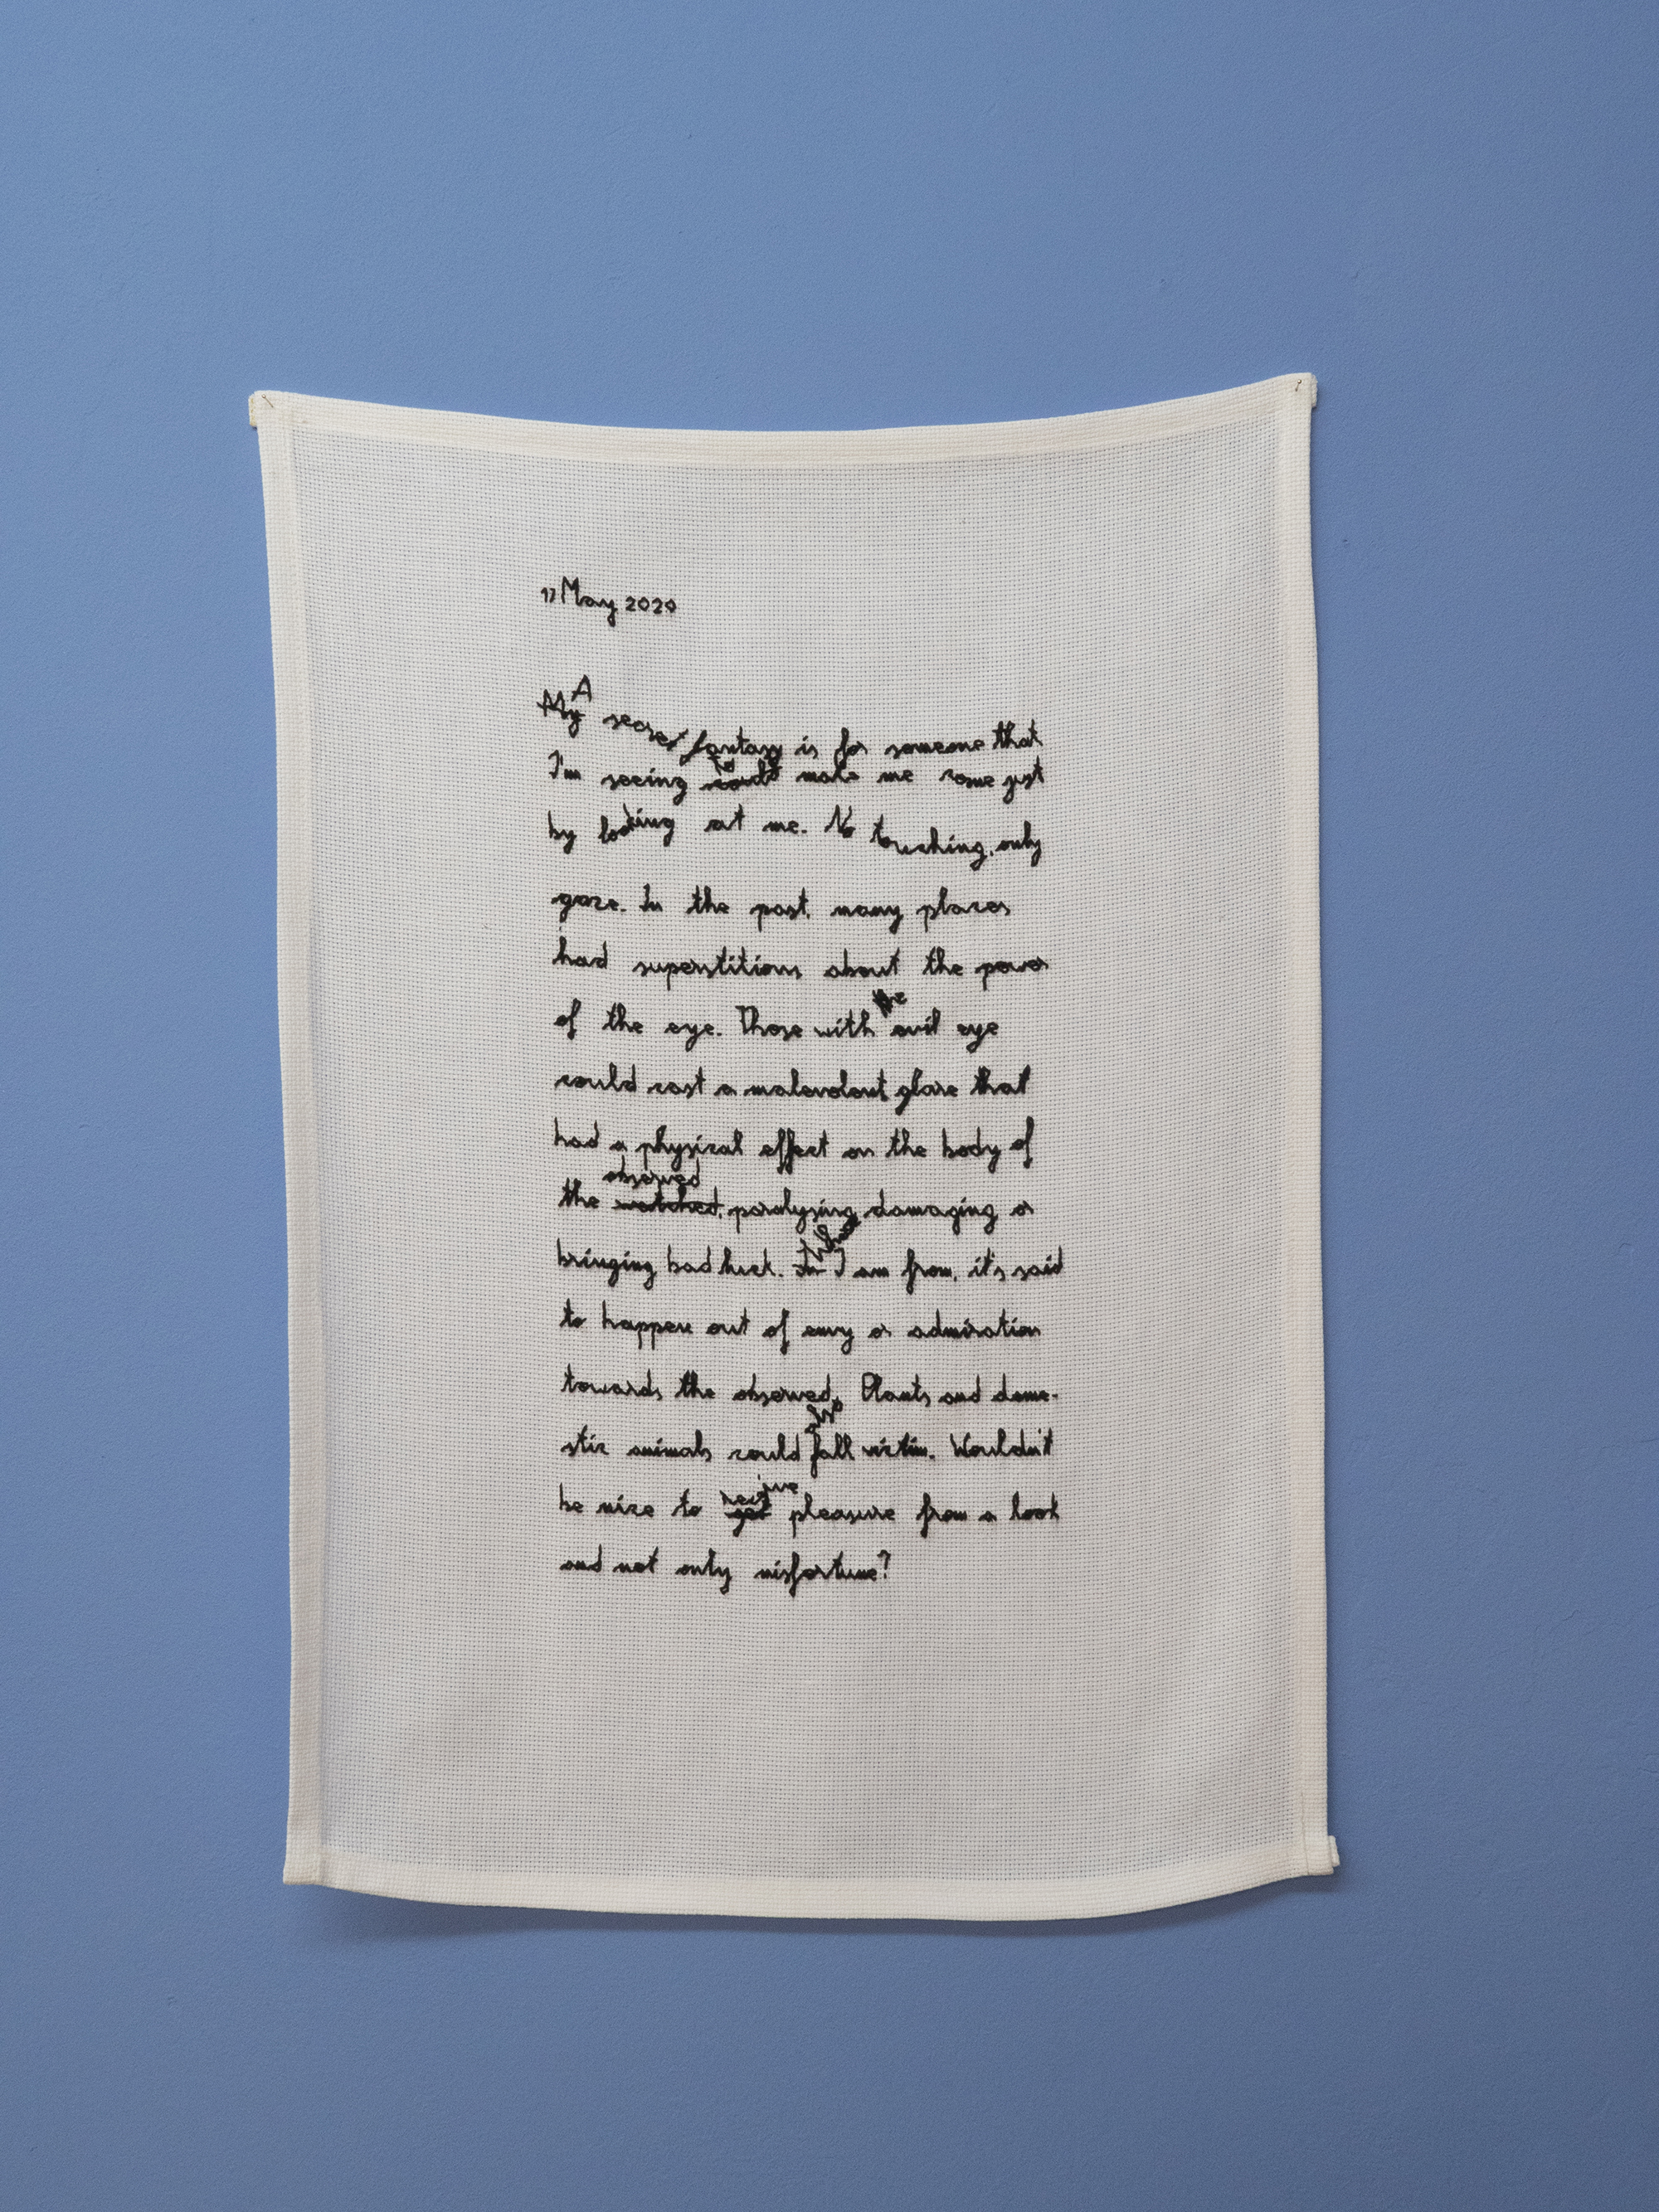 17 May 2020
My A secret fantasy is for someone that
I'm seeing could to make me come just
by looking at me. No touching, only
gaze. In the past, many places
had superstitions about the power
of the eye. Those with the evil eye
could cast a malevolent glare that
had a physical effect on the body of
the watched observed, paralysing, damaging or
bringing bad luck. In Where I am from, it's said
to happen out of envy or admiration
towards the observed. Plants and dome-
stic animals could fall victim. Wouldn't
be nice to get receive pleasure from a look
and not only misfortune?